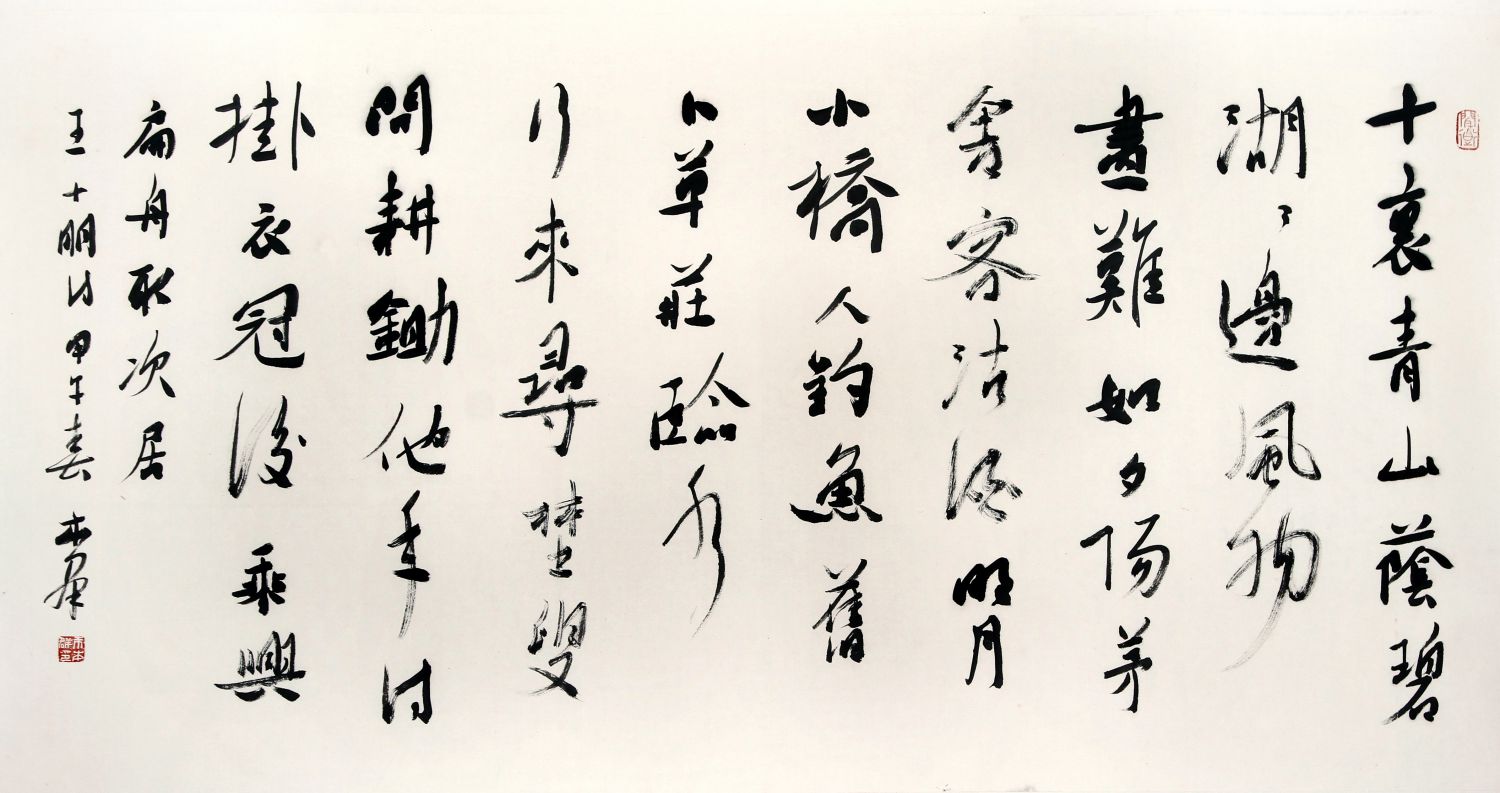 十裏青山蔭碧
湖〻邊風物
畫難如夕陽茅
舍客沽酒明月
小橋人釣魚舊
卜草莊臨水
行來尋野叟
問耕鋤他年
掛衣冠後乘興
扁舟取次居
王十朋詩甲午春